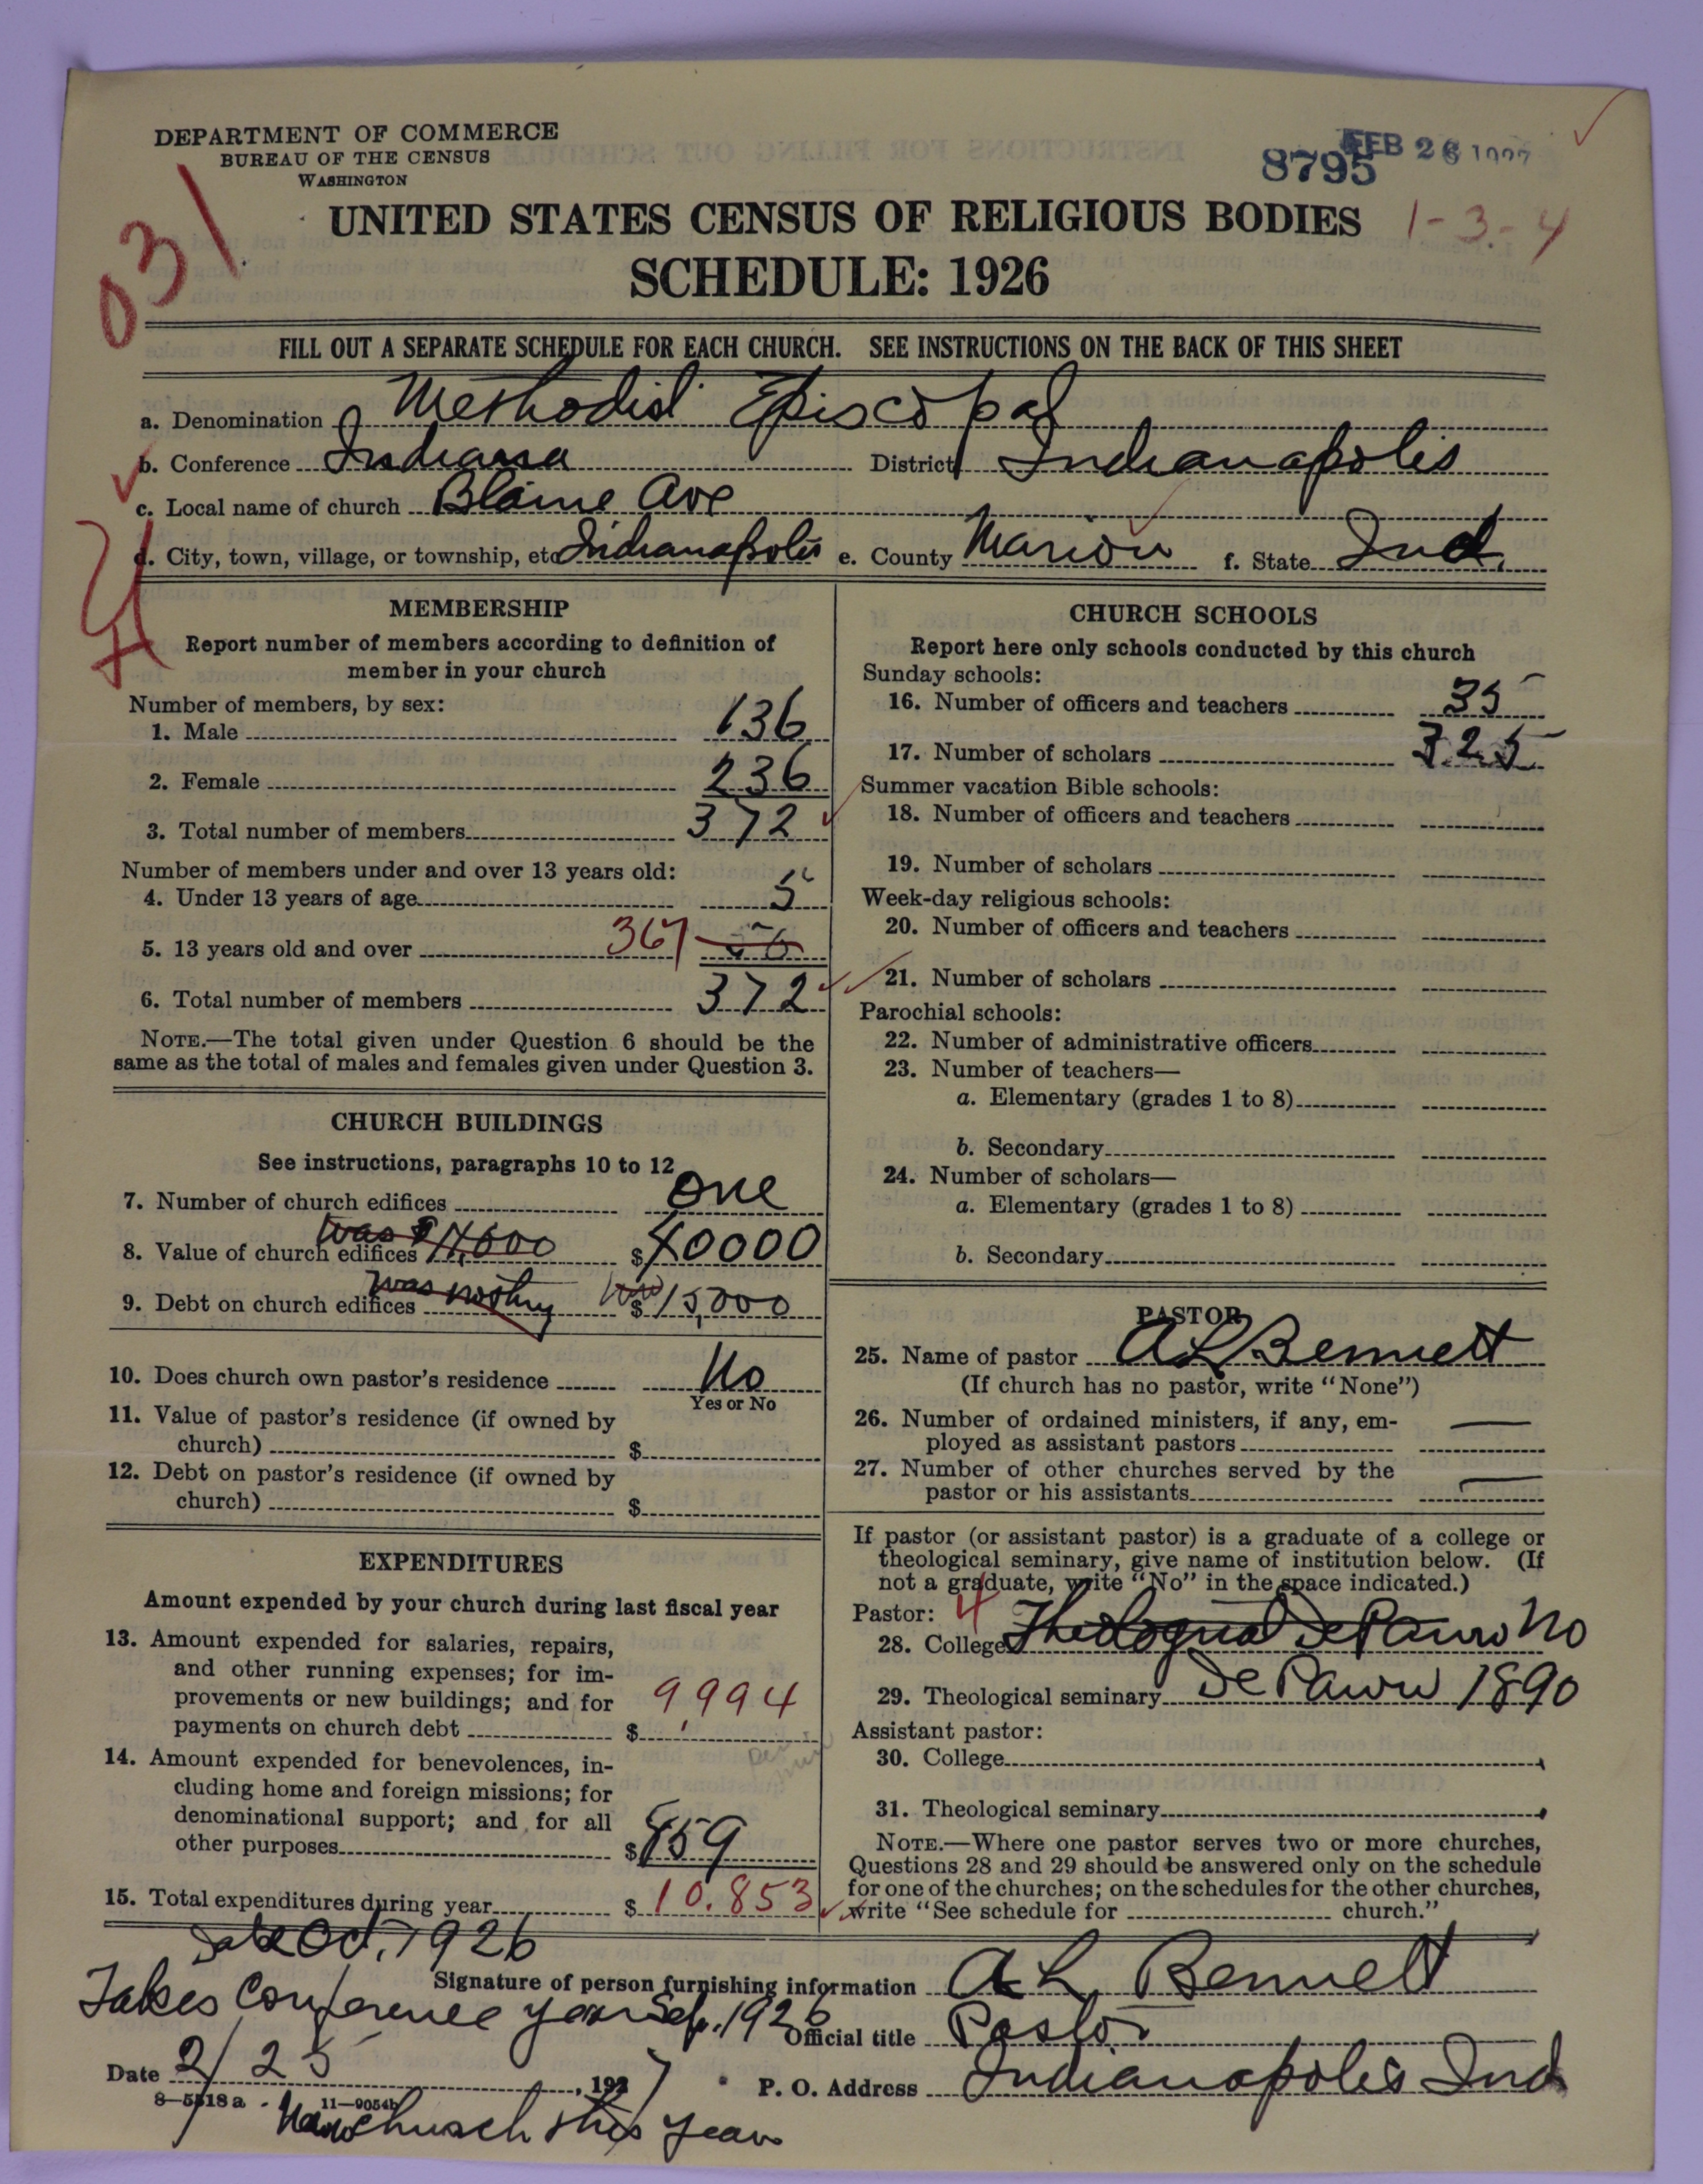 DEPARTMENT OF COMMERCE
BUREAU OF THE CENSUS
WASHINGTON
8795
FEB 26 1927
031
UNITED STATES CENSUS OF RELIGIOUS BODIES
1-3-4
SCHEDULE: 1926
FILL OUT A SEPARATE SCHEDULE FOR EACH CHURCH. SEE INSTRUCTIONS ON THE BACK OF THIS SHEET
a. Denomination Methodist Episcopal
b. Conference Indiana District Indianapolis
c. Local name of church Blaine Ave
d. City, town, village, or township, etc Indianapolis e. County Marion f. State Ind.
MEMBERSHIP
Report number of members according to definition of
member in your church
Number of members, by sex:
1. Male 136
2. Female 236
3. Total number of members 372
Number of members under and over 13 years old:
4. Under 13 years of age 5
5. 13 years old and over 367
6. Total number of members 372
NOTE.—The total given under Question 6 should be the
same as the total of males and females given under Question 3.
CHURCH BUILDINGS
See instructions, paragraphs 10 to 12
7. Number of church edifices one
was $
8. Value of church edifices $40000
was nothing now
9. Debt on church edifices $15,000
10. Does church own pastor's residence No
Yes or No
11. Value of pastor's residence (if owned by
church) $
12. Debt on pastor's residence (if owned by
church) $
EXPENDITURES
Amount expended by your church during last fiscal year
13. Amount expended for salaries, repairs,
and other running expenses; for im-
provements or new buildings; and for
payments on church debt $ 9,994
14. Amount expended for benevolences, in-
cluding home and foreign missions; for
denominational support; and for all
other purposes $859
15. Total expenditures during year $ 10,853
CHURCH SCHOOLS
Report here only schools conducted by this church
Sunday schools:
16. Number of officers and teachers 35
17. Number of scholars 325
Summer vacation Bible schools:
18. Number of officers and teachers
19. Number of scholars
Week-day religious schools:
20. Number of officers and teachers
21. Number of scholars
Parochial schools:
22. Number of administrative officers
23. Number of teachers—
a. Elementary (grades 1 to 8)
b. Secondary
24. Number of scholars—
a. Elementary (grades 1 to 8)
b. Secondary
PASTOR
25. Name of pastor A L Bennett
(If church has no pastor, write "None")
26. Number of ordained ministers, if any, em-
ployed as assistant pastors —
27. Number of other churches served by the
pastor or his assistants —
If pastor (or assistant pastor) is a graduate of a college or
theological seminary, give name of institution below. (If
not a graduate, write "No" in the space indicated.)
Pastor: 4
28. College Theological DePauw No
29. Theological seminary De Pauw 1890
Assistant pastor:
30. College
31. Theological seminary
NOTE.—Where one pastor serves two or more churches,
Questions 28 and 29 should be answered only on the schedule
for one of the churches; on the schedules for the other churches,
write "See schedule for church."
Oct. 1926
Signature of person furnishing information A L Bennett
Takes Conference year Sep. 1926
Official title Pastor
Date 2/25, 1927
P. O. Address Indianapolis Ind
8—5518 a 11—9054b
New church this year